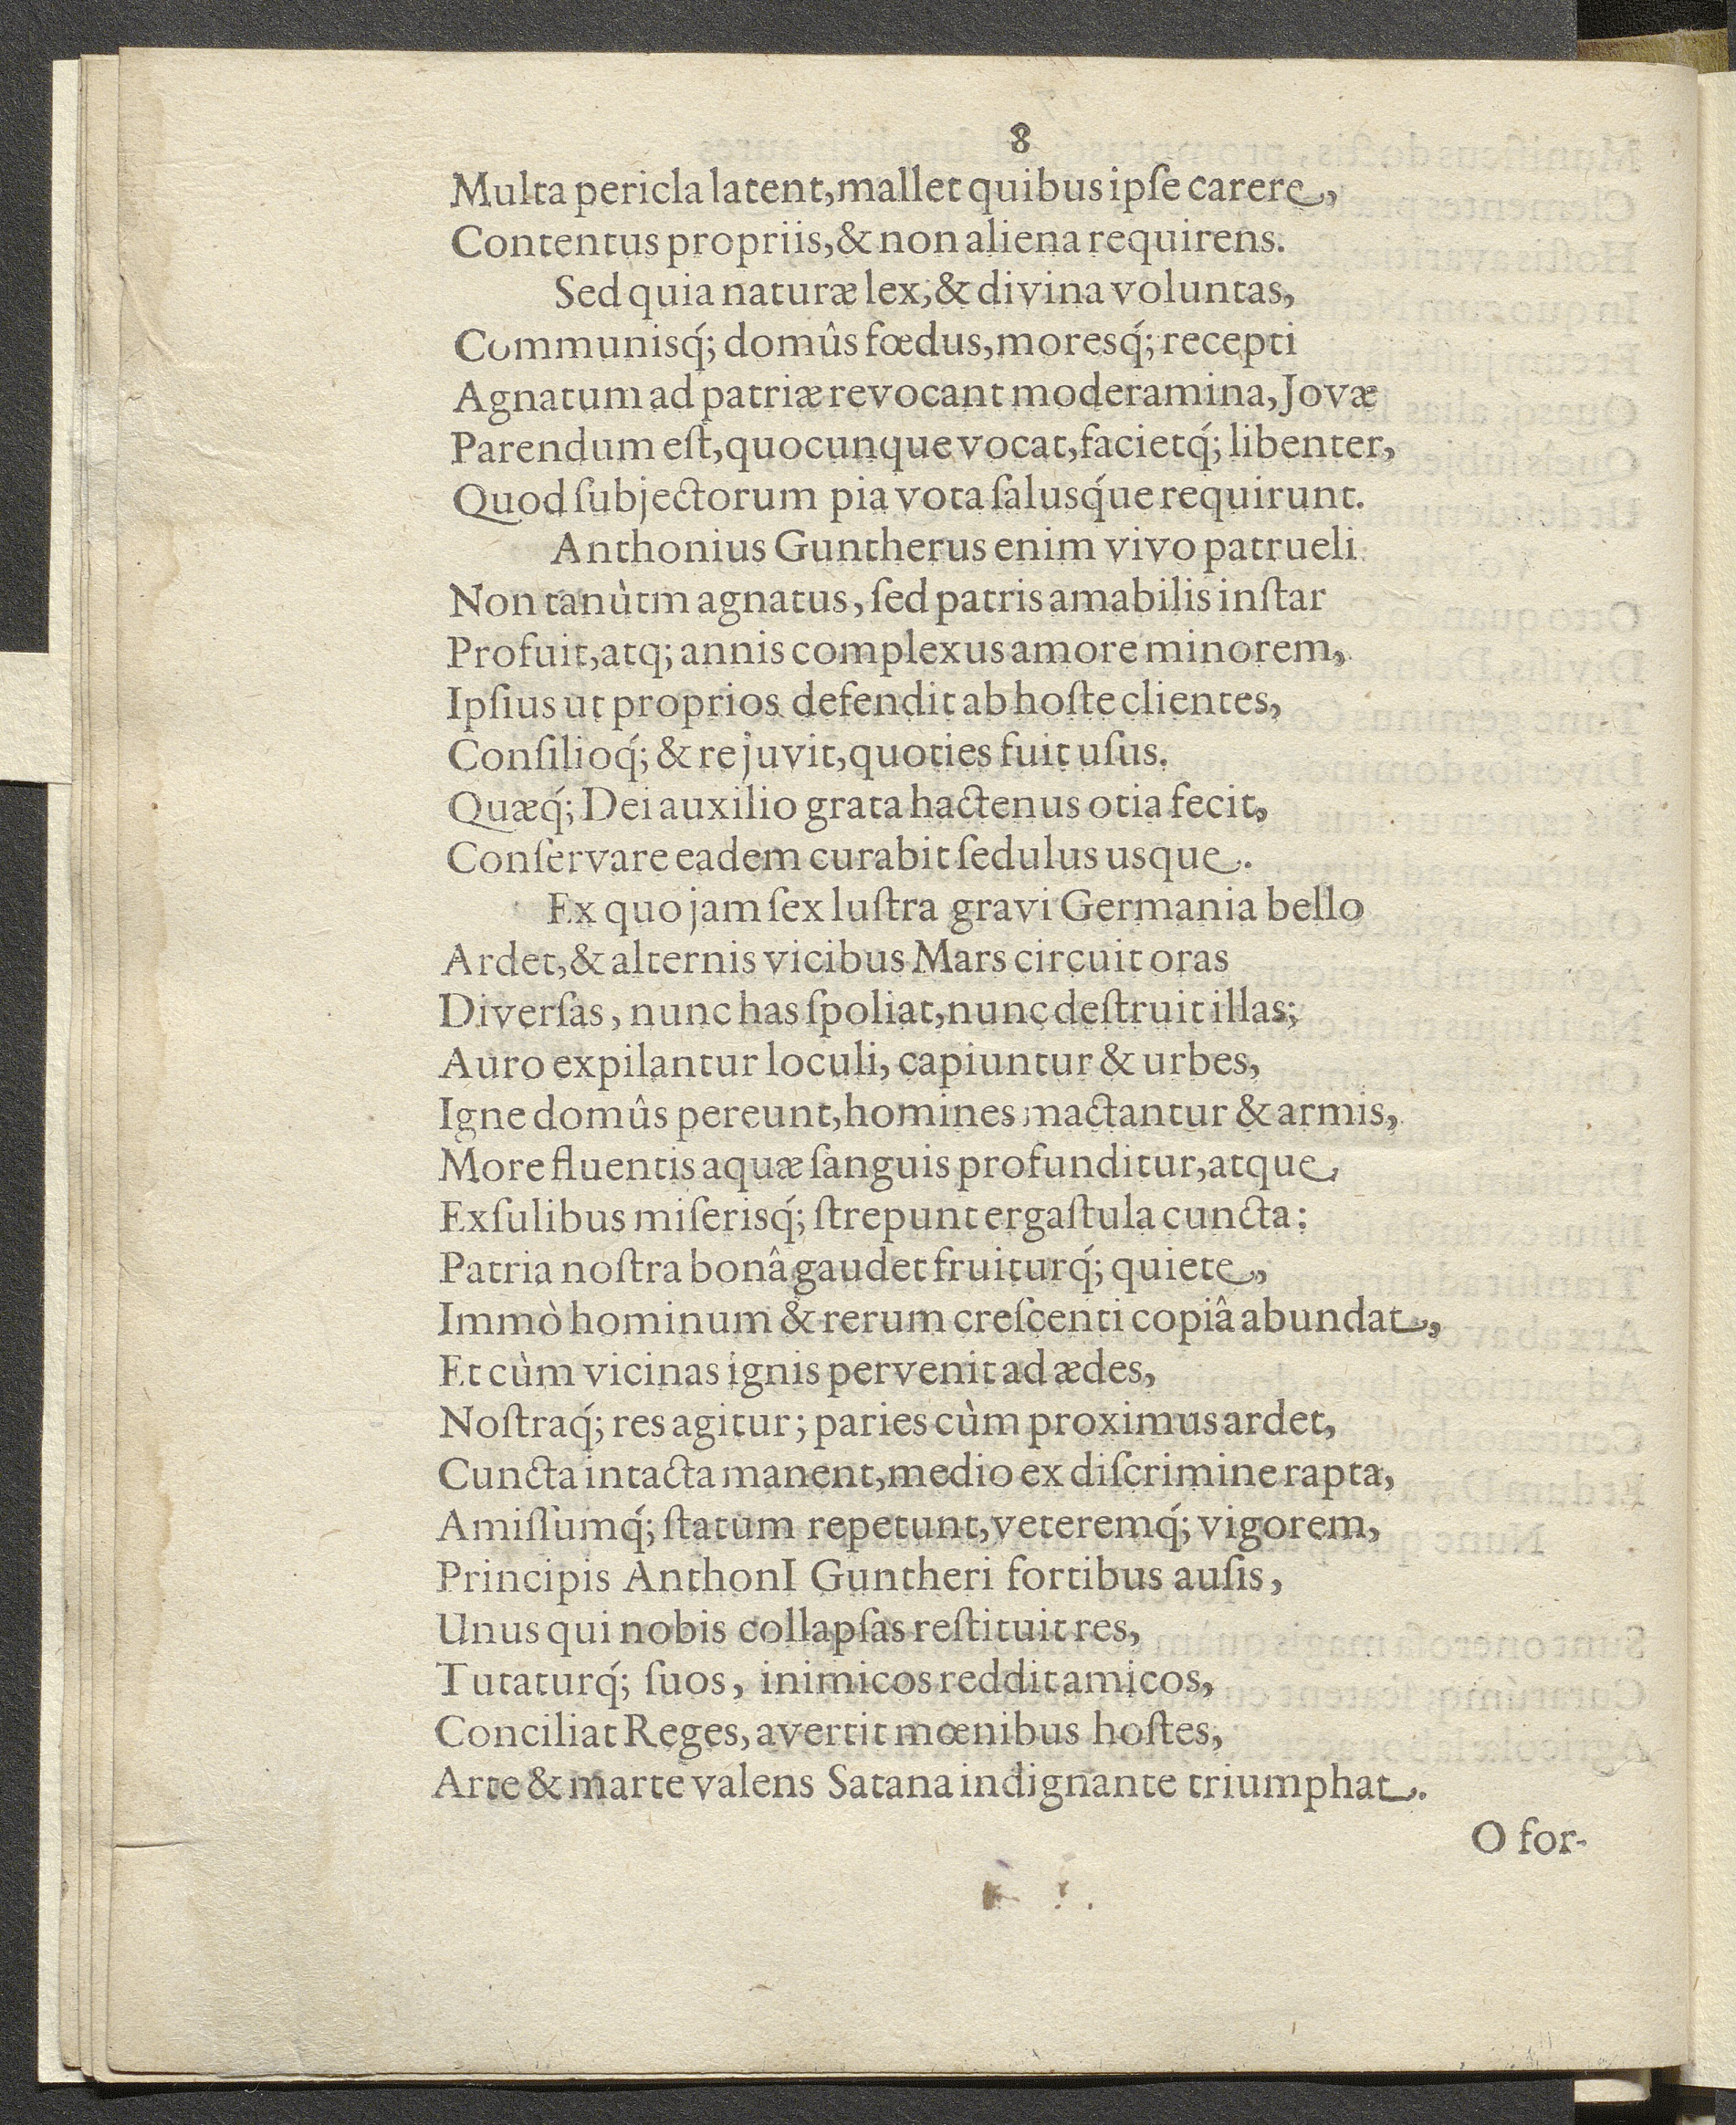 8
Multa pericla latent, mallet quibus ipſe carere,
Contentus propriis, & non aliena requirens.
Sed quia naturæ lex, & divina voluntas,
Communisq́; domûs fœdus, moresq́; recepti
Agnatum ad patriæ revocant moderamina, Jovæ
Parendum eſt, quocunque vocat, facietq́; libenter,
Quod ſubjectorum pia vota ſalusq́ue requirunt.
Anthonius Guntherus enim vivo patrueli
Non tanùtm agnatus, ſed patris amabilis inſtar
Profuit, atq; annis complexus amore minorem,
Ipſius ut proprios defendit ab hoſte clientes,
Conſilioq́; & re juvit, quoties fuit uſus.
Quæq́; Dei auxilio grata hactenus otia fecit,
Conſervare eadem curabit ſedulus usque.
Ex quo jam ſex luſtra gravi Germania bello
Ardet, & alternis vicibus Mars circuit oras
Diverſas, nunc has ſpoliat, nunc deſtruit illas;
Auro expilantur loculi, capiuntur & urbes,
Igne domûs pereunt, homines mactantur & armis,
More fluentis aquæ ſanguis profunditur, atque
Exſulibus miſerisq́; ſtrepunt ergaſtula cuncta:
Patria noſtra bonâ gaudet fruiturq́; quiete,
Immò hominum & rerum creſcenti copiâ abundat,
Et cùm vicinas ignis pervenit ad ædes,
Noſtraq́; res agitur; paries cùm proximus ardet,
Cuncta intacta manent, medio ex diſcrimine rapta,
Amiſſumq́; ſtatum repetunt, veteremq́; vigorem,
Principis AnthonI Guntheri fortibus auſis,
Unus qui nobis collapſas reſtituit res,
Tutaturq́; ſuos, inimicos reddit amicos,
Conciliat Reges, avertit mœnibus hoſtes,
Arte & marte valens Satana indignante triumphat.
O for-